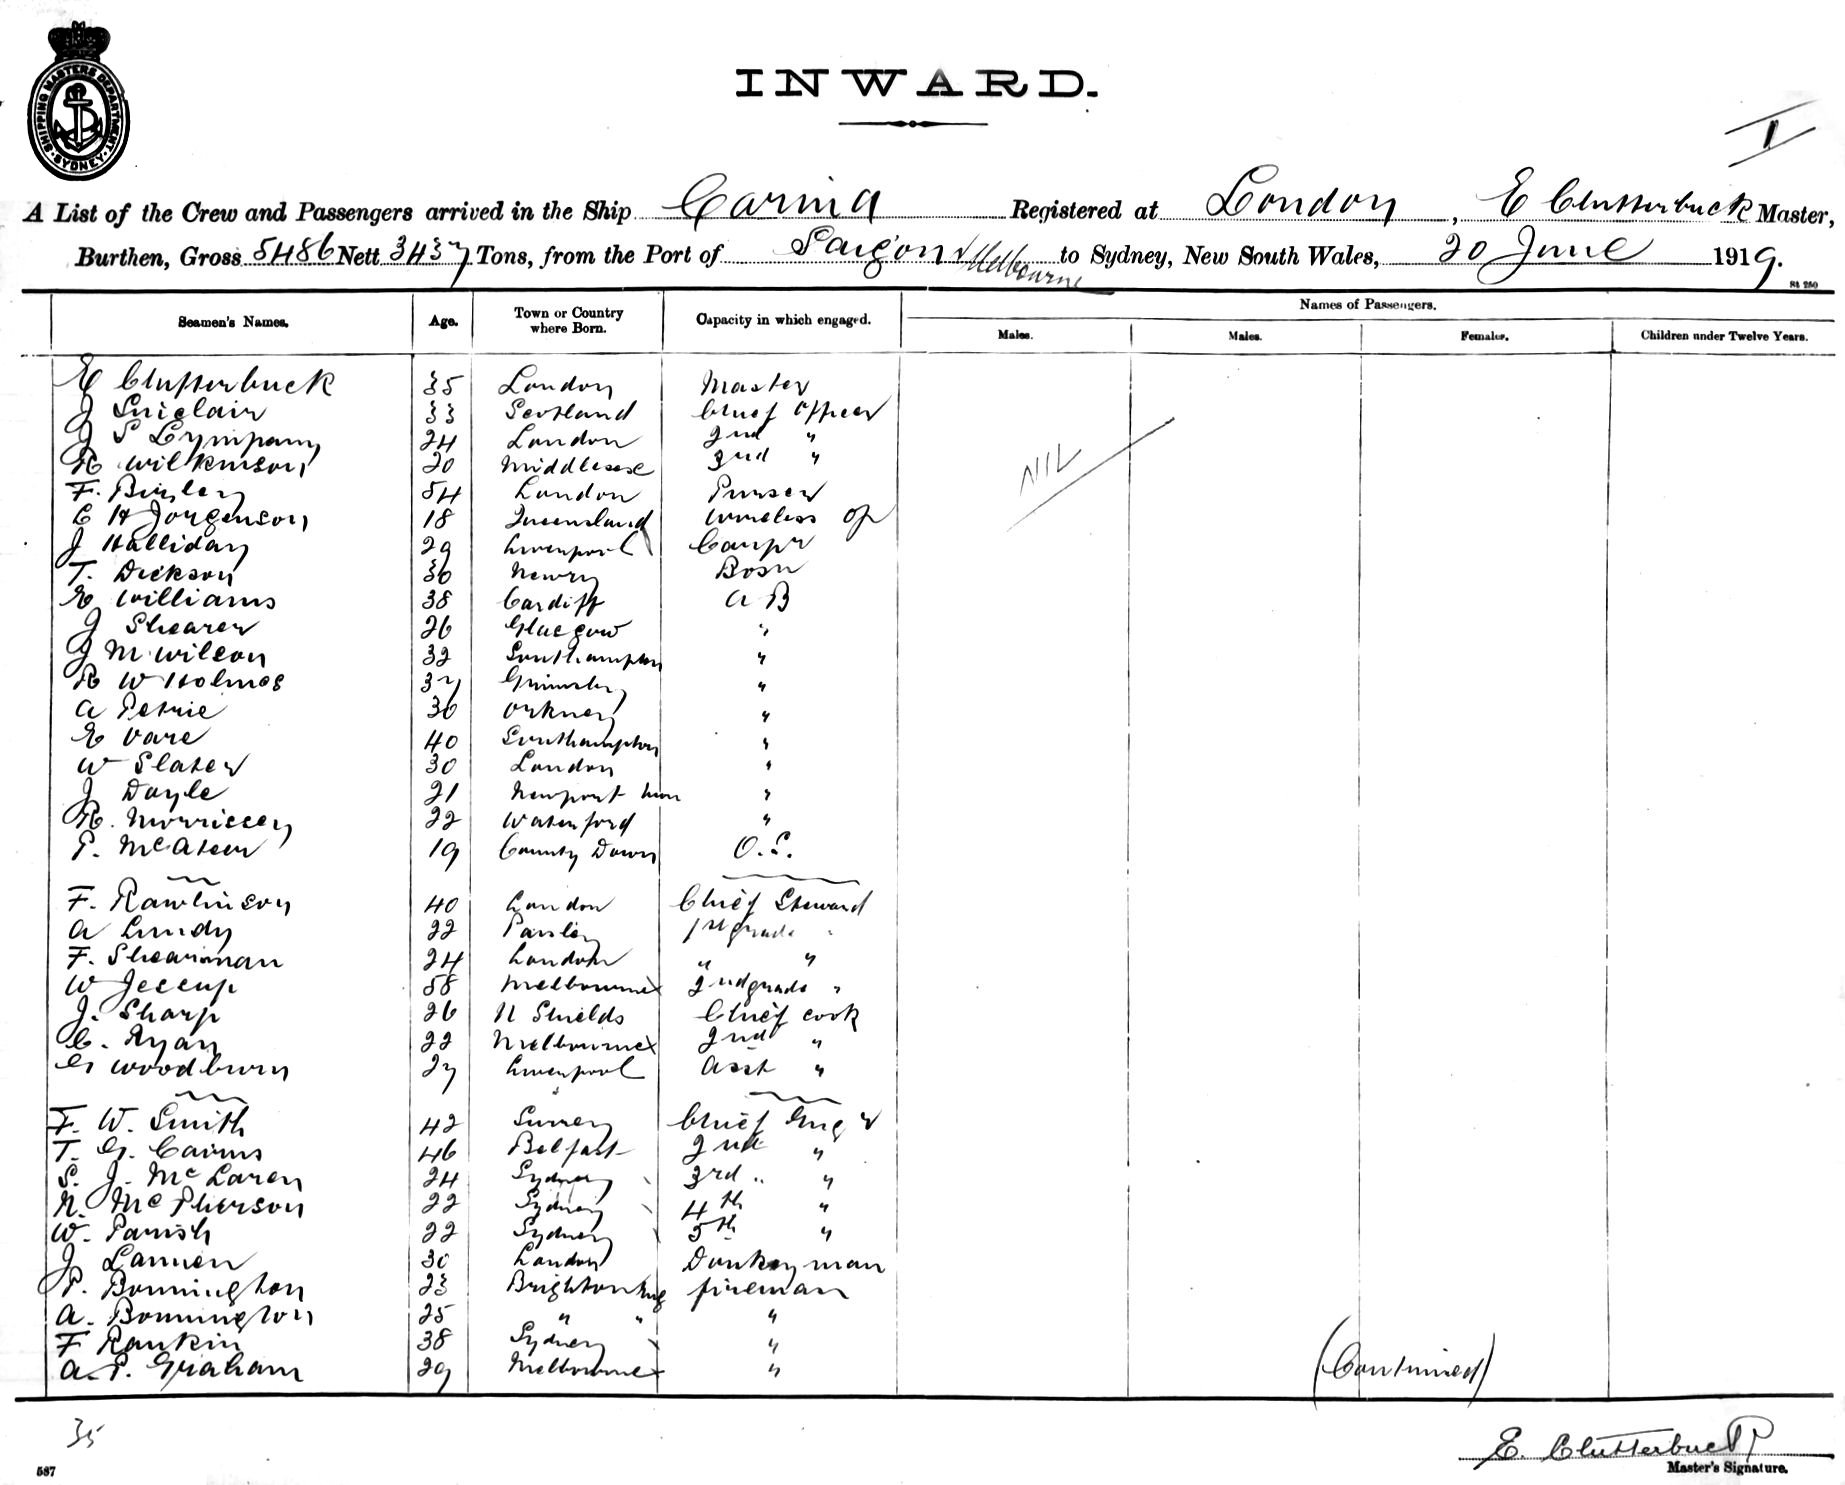 SHIPPING MASTERS DEPARTMENT · SYDNEY ·
INWARD.
1
A List of the Crew and Passengers arrived in the Ship Carina Registered at London, E Clutterbuck Master,
Burthen, Gross 5486 Nett 3437 Tons, from the Port of Saigon & Melbourne to Sydney, New South Wales, 20 June 1919.
Seamen's Names. Age. Town or Country where Born. Capacity in which engaged. Names of Passengers.
Males. Males. Females. Children under Twelve Years.
E Clutterbuck 35 London Master
J Sinclair 33 Scotland Chief Officer
J S Lympany 24 London 2nd "
R Wilkinson 20 Middlesex 3rd "
NIL
F. Bailey 54 London Purser
C H Jorgenson 18 Queensland Wireless Op
J Halliday 29 Liverpool Carpr
T. Dickson 30 Newry Bosn
E Williams 38 Cardiff A B
J Shearer 26 Glasgow "
J M Wilson 32 Southampton "
R W Holmes 37 Grimsby "
A Petrie 30 Orkney "
E Vare 40 Southampton "
W Slater 30 London "
J Doyle 21 Newport Mon "
R. Morrissey 22 Waterford "
P. McAteer 19 County Down O.S.
F. Rawlinson 40 London Chief Steward
A Lundy 22 Paisley 1st grade "
F. Shearman 24 London " "
W Jessup 58 Melbourne x 2nd grade "
J. Sharp 26 N Shields Chief cook
C. Ryan 22 Melbourne x 2nd "
G Woodburn 27 Liverpool asst "
F. W. Smith 42 Surrey Chief Engr
T. G. Cairns 46 Belfast 2nd "
S. J. McLaren 24 Sydney 3rd "
N. McPherson 22 Sydney 4th "
W. Parish 22 Sydney 5th "
J Lannen 30 London Donkeyman
P. Bonnington 23 Brighton Eng fireman
A. Bonnington 25 " " "
F Rankin 38 Sydney "
A. P. Graham 29 Melbourne x "
(Continued)
35
E. Clutterbuck
Master's Signature.
587